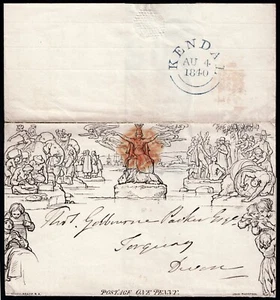 KENDAL
AU 4
1840
Thos. Golbourne Parker Esqr.
Torquay
Devon
POSTAGE ONE PENNY.